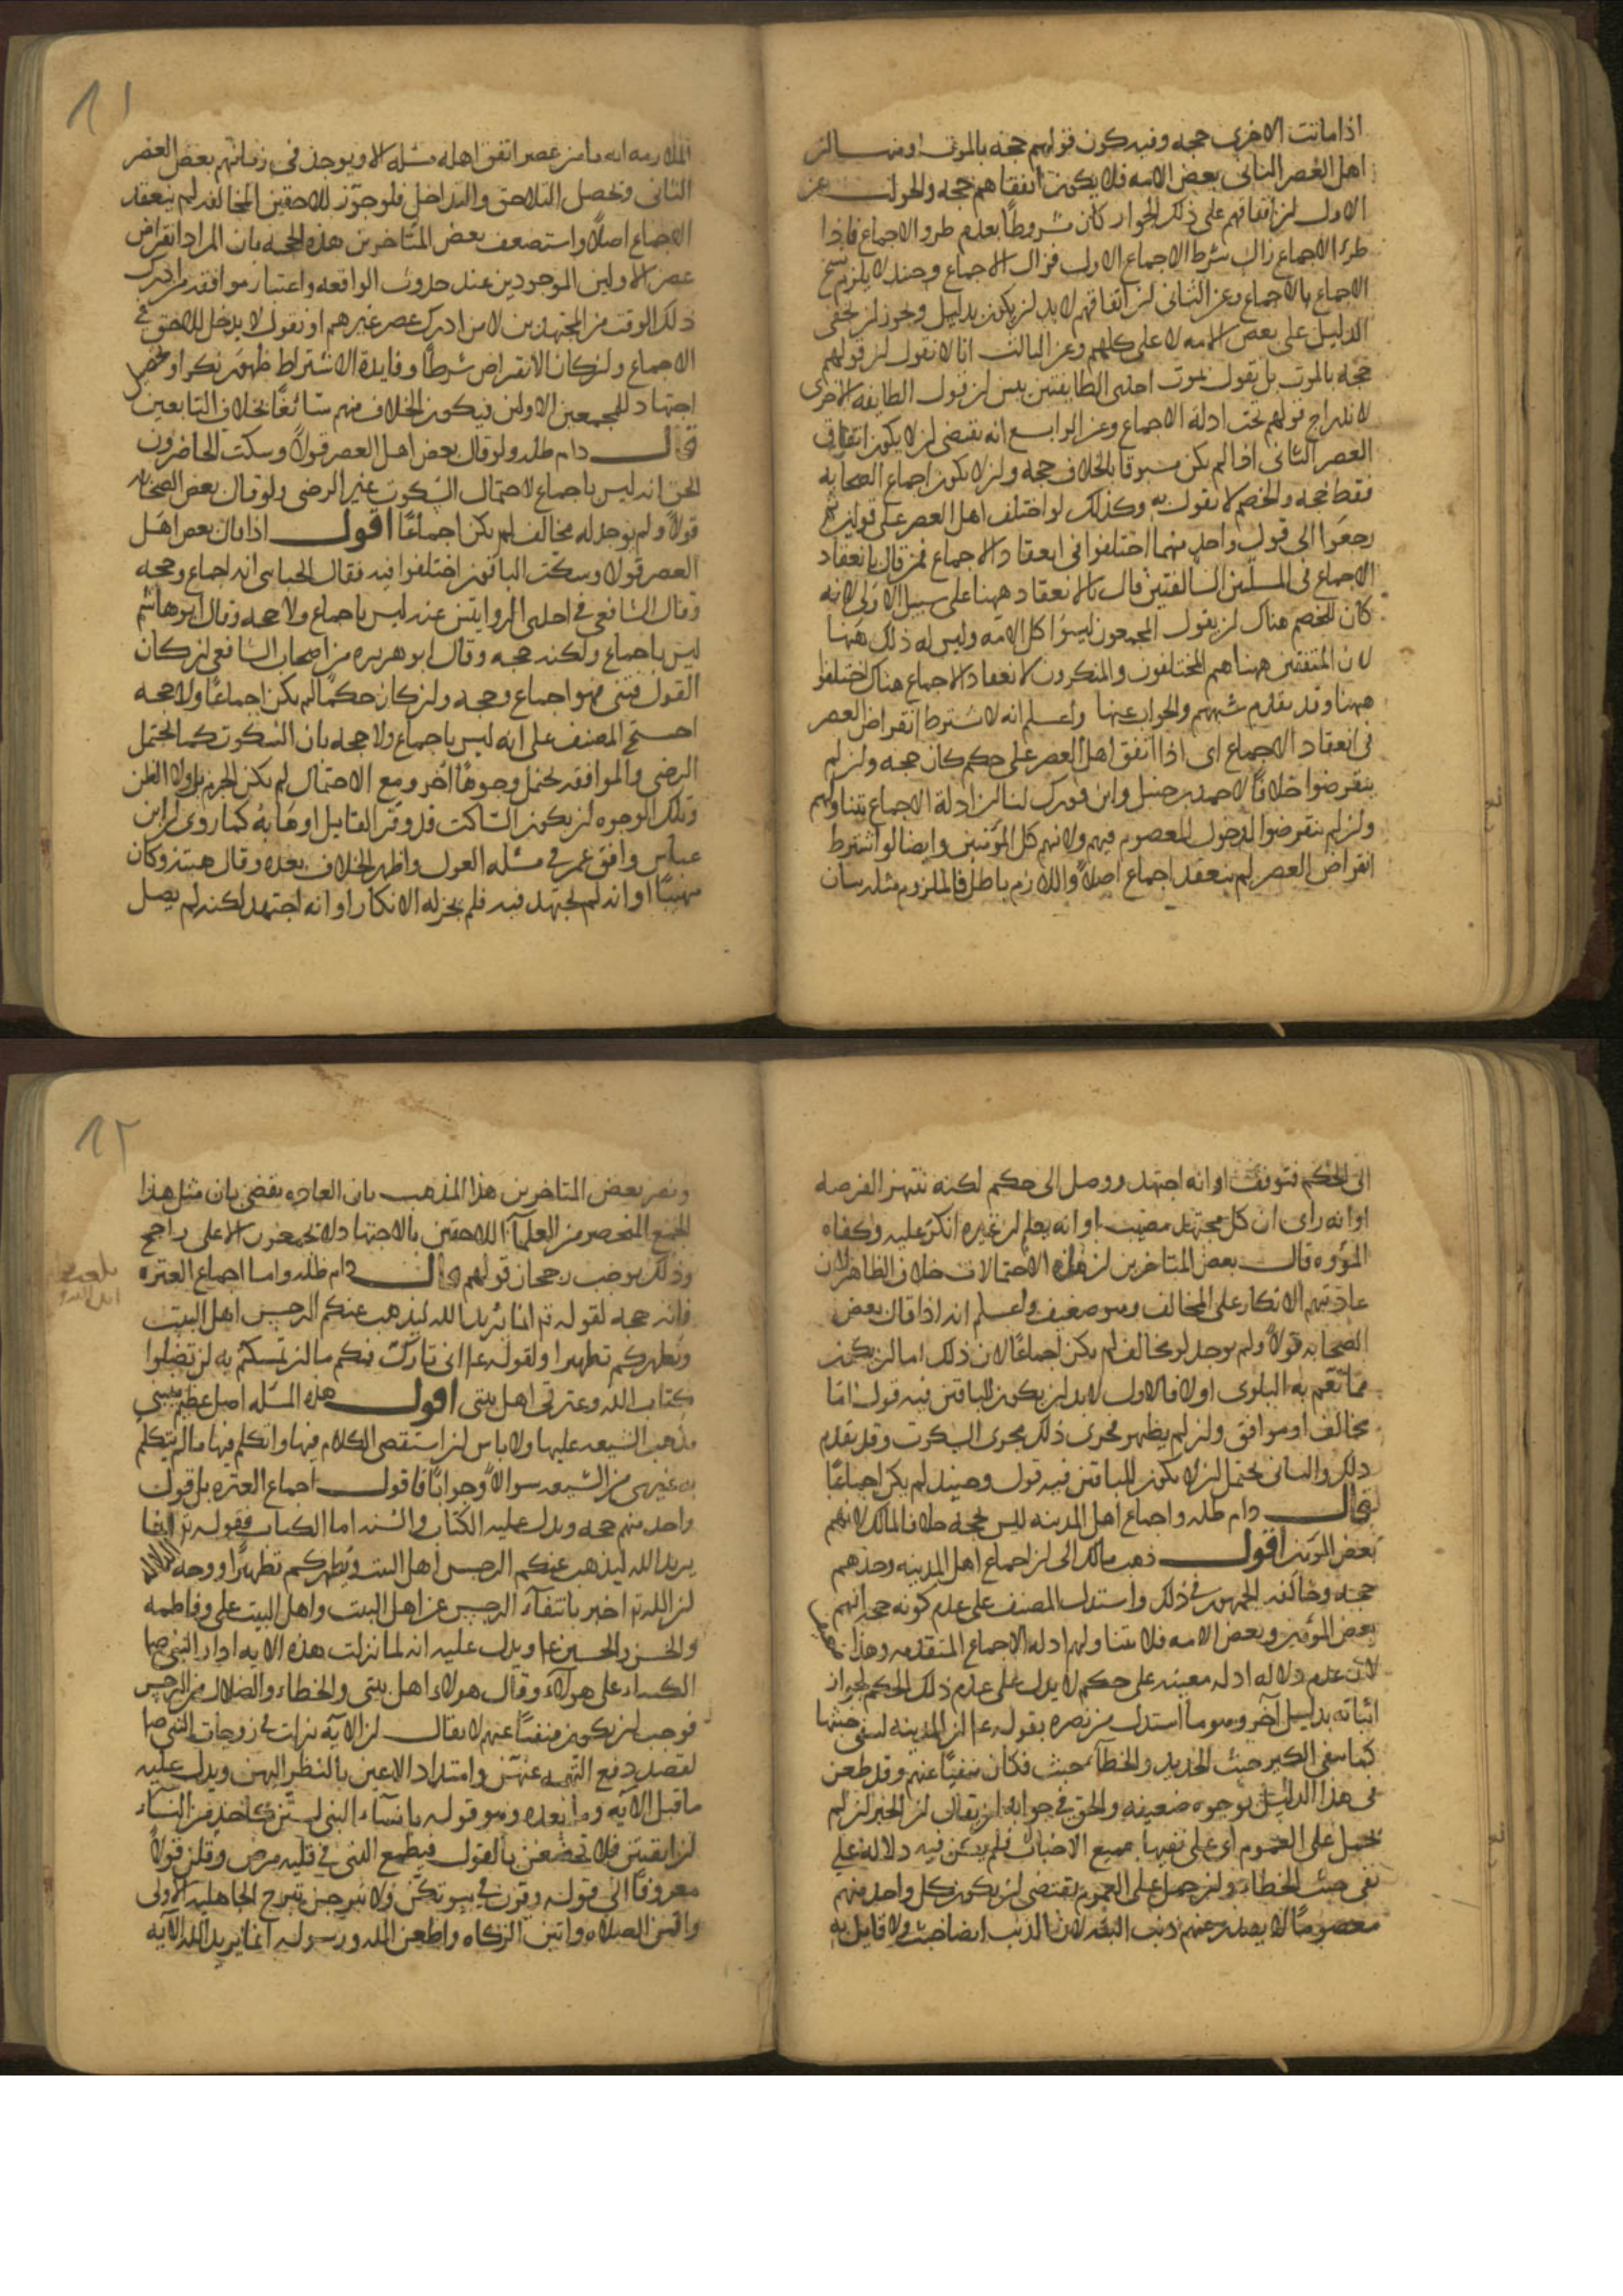 اذا ماتت الاخرى حجه وفيه كون قولهم حجه بالموت اومنـــا لن
اهل العصر الثانى بعض الامه فلا يكون اتفاقهم حجه والجواب عن
الاول لن اتفاقهم على ذلك الجواز كان مشروطا بعدم طرو الاجماع فاذا
طرء الاجماع زال شرط الاجماع الاول فزال الاجماع وحىند لا يلزم نسخ
الاجماع بالاجماع وعن الثانى لن اتفاقهم لابد لن يكون بدليل ويجوز لن يخفى
الدليل على بعض الامه لا على كلهم وعن الثالث انا لا نقول لن قولهم
حجه بالموت بل نقول بموت احدى الطايفتين يبىن لن قول الطايفه الاخرى
لاندراج قولهم تحت ادلة الاجماع وعن الرابع انه يقتضى لن لا يكون اتفاق
العصر الثانى اذا لم يكن مسبوقا بالخلاف حجه ولن لا يكون اجماع الصحابه
فقط حجه والخصم لا يقول به وكذلك لو اختلف اهل العصر على قولين ثم
رجعوا الى قول واحد منهما اختلفوا فى انعقاد الاجماع فمن قال بانعقاد
الاجماع فى المسلتين السالفتين قال بالانعقاد ههنا على سبيل الاولى لانه
كان للخصم هناك لن يقول المجمعون ليسوا كل الامه وليس له ذلك ههنا
لان المتفقين ههنا هم المختلفون والمنكرون لانعقاد الاجماع هناك اختلفوا
ههنا وقد تقدم شبههم والجواب عنها واعـلم انه لا يشترط انقراض العصر
فى انعقاد الاجماع اى اذا اتفق اهل العصر على حكم كان حجه ولن لم
ينقرضوا خلافا لاحمد بن حنبل وابن فورك لنا لن ادلة الاجماع يتناولهم
ولن لم ينقرضوا لدخول المعصوم فيهم ولانهم كل المؤمنين وايضا لو اشترط
انقراض العصر لم ينعقد اجماع اصلاً واللازم باطل فالملزوم مثله بيان
١١
الملازمه انه ما من عصر اتفق اهله مسله الا ويوجد فى زمانهم بعض العصر
الثانى وتحصل التلاحق والتداخل فلو جوّز للاحقين المخالفه لم ينعقد
الاجماع اصلاً واستضعف بعض المتاخرين هذه الحجه بان المراد انقراض
عصر الاولين الموجودين عند حدوث الواقعه واعتبار موافقه من ادرك
ذلك الوقت من المجتهدين لا من ادرك عصر غيرهم او نقول لا يدخل للاحق فى
الاجماع ولن كان الانقراض شرطاً وفايدة الاشتراط ظهور نكر او تحصيل
اجتهاد للمجمعين الاولين فيكون الخلاف منهم سائغاً بخلاف التابعين
قال دام ظله ولو قال بعض اهل العصر قولاً وسكت الحاضرون
الحق انه ليس باجماع لاحتمال السكوت غير الرضى ولو قال بعض الصحابه
قولاً ولم يوجد له مخالف لم يكن اجماعاً اقول اذا قال بعض اهل
العصر قولا وسكت الباقون اختلفوا فيه فقال الجباىى انه اجماع وحجه
وقال الشافعى فى احدى الروايتين عنه ليس باجماع ولا حجه وقال ابو هاشم
ليس باجماع ولكنه حجه وقال ابو هريره من اصحاب الشافعى لن كان
القول فتىى فهو اجماع وحجه ولن كان حكما لم يكن اجماعا ولا حجه
احتج المصنف على انه ليس باجماع ولا حجه بان السكوت كما يحتمل
الرضى والموافقه يحتمل وجوهًا اخر ومع الاحتمال لم يكن الجزم بل ولا الظن
وتلك الوجوه لن يكون الساكت قد وقر القايل او هابه كما روى لن ابن
عباس وافق عمر فى مسله العول واظهر الخلاف بعده وقال هبته وكان
مهيبًا او انه لم يجتهد فيه فلم يجز له الانكار او انه اجتهد لكنه لم يصل
الى الحكم فتوقف او انه اجتهد ووصل الى حكم لكنه ينتهز الفرصه
او انه راى ان كل مجتهد مصيب او انه يعلم لن غيره انكر عليه وكفاه
المؤوه قال بعض المتاخرين لن هذه الاحتمالات خلاف الظاهر لان
عادتهم الانكار على المخالف وهو ضعيف واعـلم انه اذا قال بعض
الصحابه قولاً ولم يوجد له مخالف لم يكن اجماعا لان ذلك اما لن يكون
مما تعم به البلوى اولا فالاول لابد لن يكون للباقين فيه قول امّا
مخالف او موافق ولن لم يظهر فجرى ذلك مجرى السكوت وقد تقدم
ذلك والثانى يحتمل لن لا يكون للباقين فيه قول وحينيذ لم يكن اجماعًا
قال دام ظله واجماع اهل المدينه ليس بحجه خلافا لمالك لانهم
بعض المؤمنين اقول ذهب مالك الى لن اجماع اهل المدينه وحدهم
حجه وخالفه الجمهور فى ذلك واستدل المصنف على عدم كونه حجه انهم
بعض المؤمنين وبعض الامه فلا يتناولهم ادلة الاجماع المتقدمه وهذا
لان عدم دلاله ادله معينه على حكم لا يدل على عدم ذلك الحكم لجواز
اثباته بدليل آخر وهو ما استدل من نصره بقوله عا لن المدينه لتنفى خبثها
كما ينفى الكير خبث الحديد والخطأ خبث فكان منفيًا عنهم وقد طعن
فى هذا الدليل بوجوه ضعيفه والحق فى جوابه لن يقال لن الخبر لن لم
يحمل على العموم اى على نفيها جميع الاخباث فلم يكن فيه دلاله على
نفى خبث الخطاء ولن حمل على العموم يقتضى لن يكون كل واحد منهم
معصوما لا يصدر عنهم ذنب البته لان الذنب ايضا خبث ولا قايل به
١٢
ونصر بعض المتاخرين هذا المذهب بان العاده يقضى بان مثل هذا
الجمع المنحصر من العلمآ اللاحقين بالاجتهاد لا يجمعون الا على راجح
وذلك يوجب رجحان قولهم قال دام ظله واما اجماع العتره
فانه حجه لقوله تع انما يريد الله ليذهب عنكم الرجس اهل البيت
ويطهركم تطهيرا ولقوله عا انى تارك فيكم ما لن تمسكتم به لن تضلوا
كتاب الله وعترتى اهل بيتى اقول هذه المسله اصل عظيم يبتنى
مذهب الشيعه عليها ولا باس لن استقصى الكلام فيها واتكلم فيها ما لم يتكلم
به غيرى من الشيعه سوالاً وجوابًا فاقول اجماع العتره بل قول
واحد منهم حجه ويدل عليه الكتاب والسنه اما الكتاب فقوله تع انما
يريد الله ليذهب عنكم الرجس اهل البيت ويطهركم تطهيرًا ووجه الدلاله
لن الله تع اخبر بانتفآء الرجس عن اهل البيت واهل البيت على وفاطمه
والحسن والحسين عا ويدل عليه انه لما نزلت هذه الايه ادار النبى صا
الكساء على هولآء وقال هولاء اهل بيتى والخطاء والضلال من الرجس
فوجب لن يكون منفيًا عنهم لا يقال لن الآية نزلت فى زوجات النبى صا
لقصد دفع التهمه عنهن وامتداد الاعين بالنظر اليهن ويدل عليه
ما قبل الآيه وما بعده وهو قوله يا نساء النبى لستن كاحد من النسآء
لن اتقيتن فلا تخضعن بالقول فيطمع الذى فى قلبه مرض وقلن قولاً
معروفًا الى قوله وقرن فى بيوتكن ولا تبرجن تبرج الجاهليه الاولى
واقمن الصلاه واتين الزكاه واطعن الله ورسوله انما يريد الله الآيه